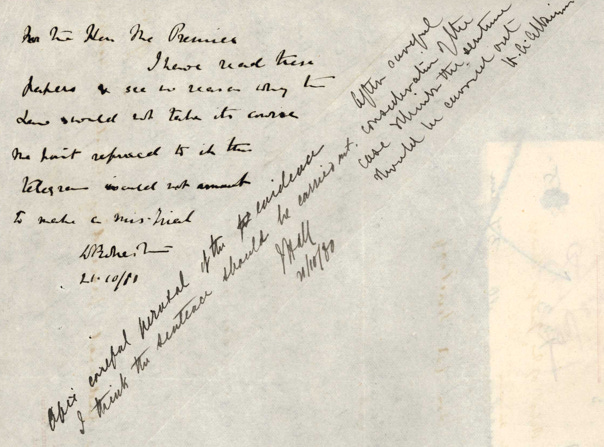 For the Hon The Premier
I have read these
papers & see no reason why the
Law should not take its course
The point referred to in the
telegram would not amount
to make a mis-trial
21-10/80
After careful perusal of the evidence
I think the sentence should be carried out.
J Hall
21/10/80
After careful
consideration of the
case I think the sentence
should be carried out
H. A. Atkinson